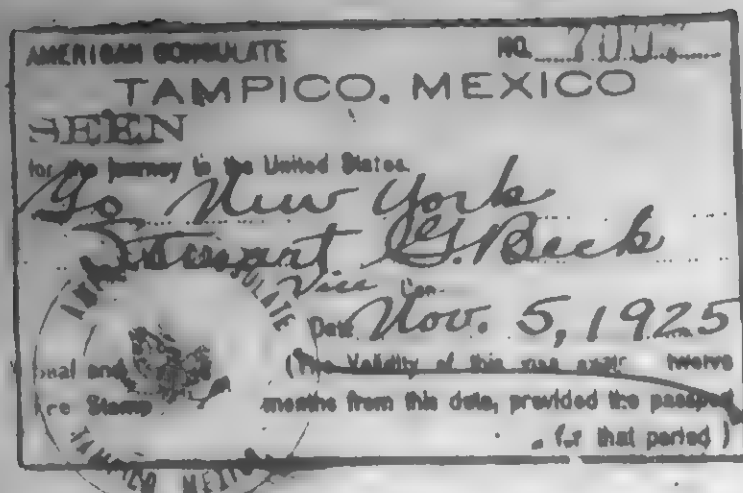 AMERICAN CONSULATE NO. 700.
TAMPICO, MEXICO
SEEN
for the journey to the United States.
To New York
Stewart G. Beck
Vice Con-
Date Nov. 5, 1925
Seal and (The Validity of this visa expires twelve
Fee Stamp months from this date, provided the passport
for that period)
AMERICAN CONSULATE
TAMPICO MEXICO